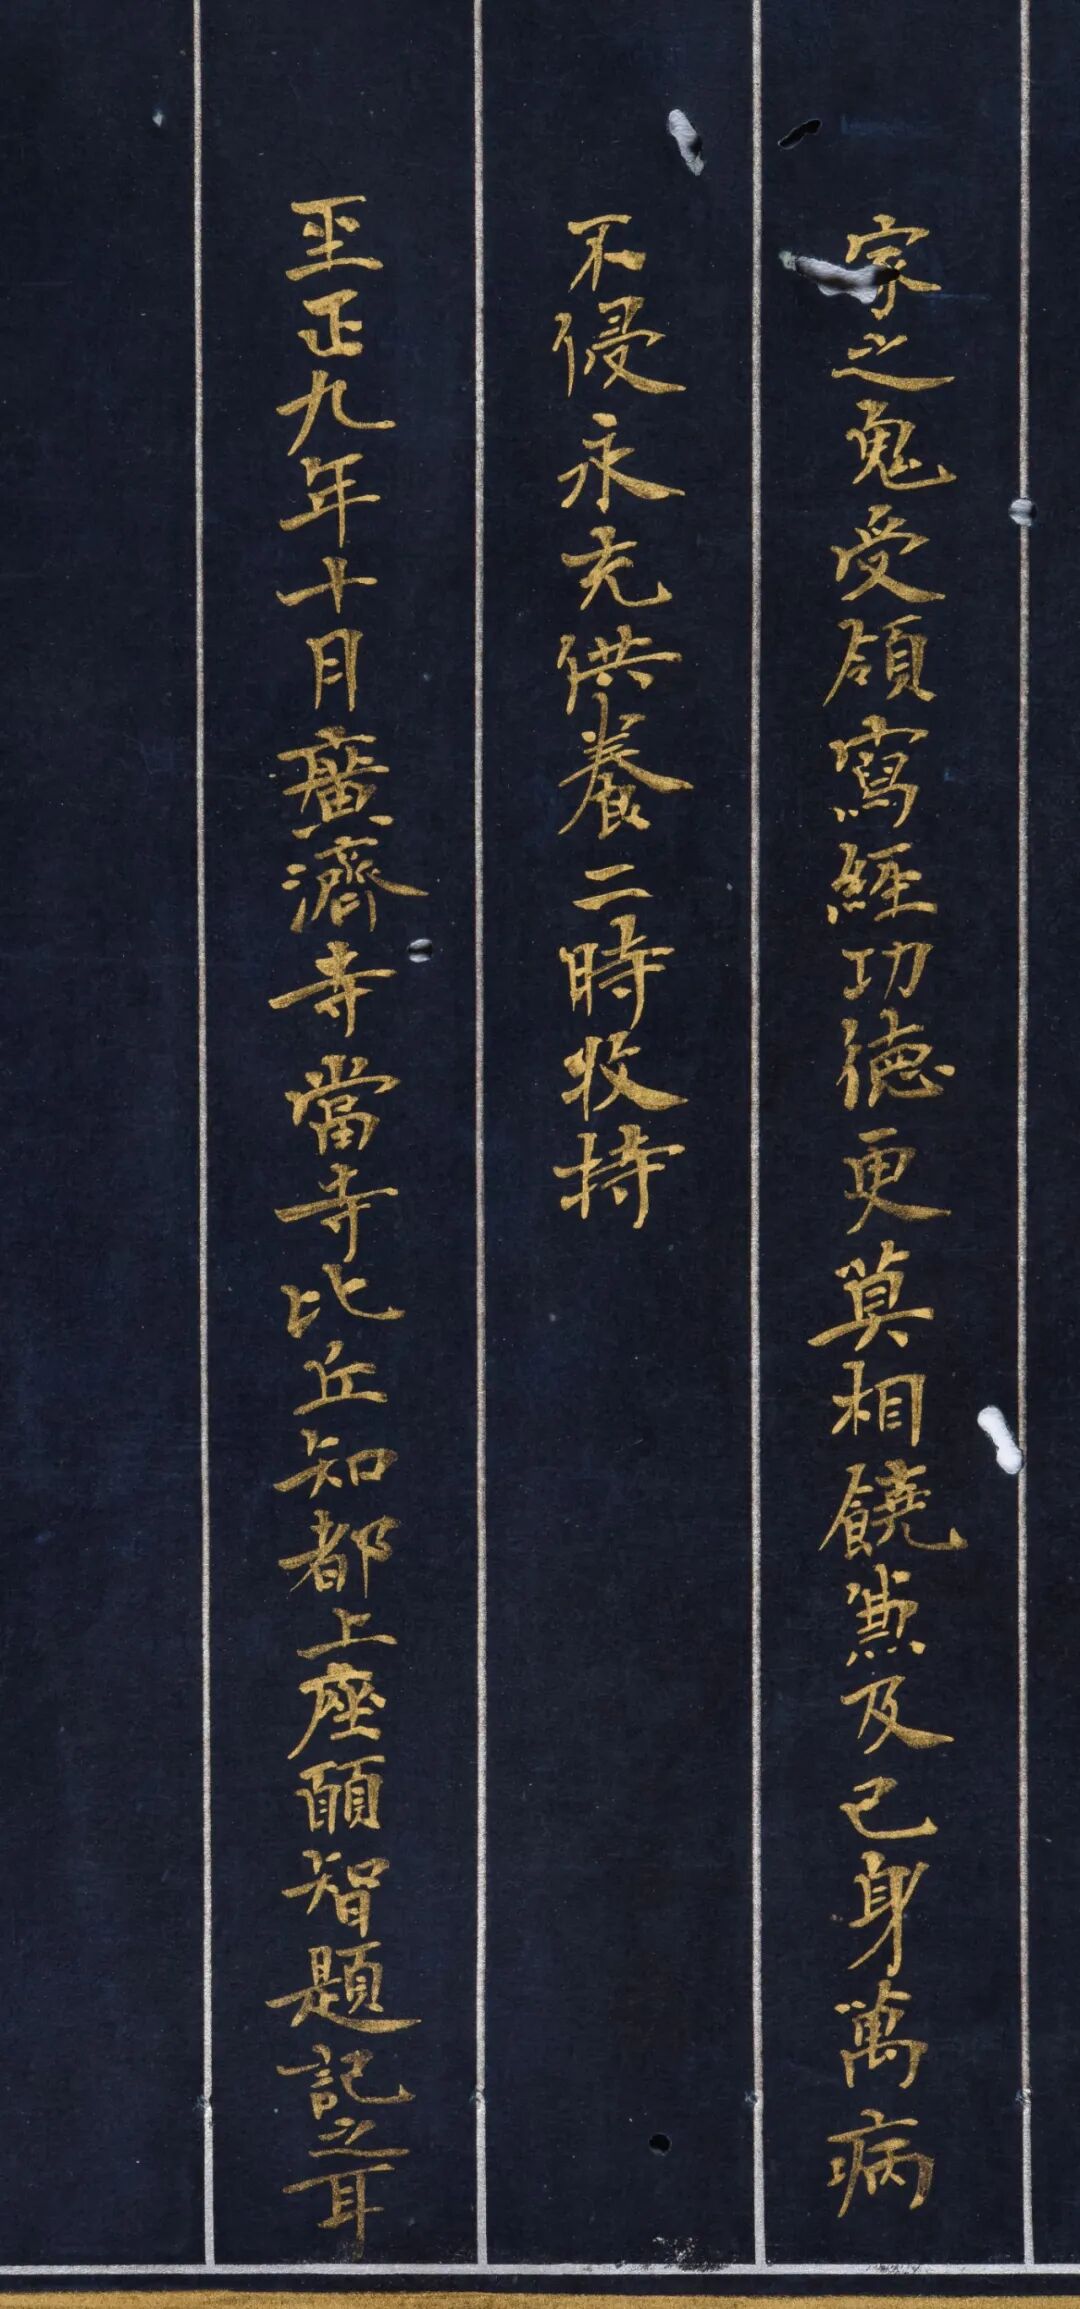 家之鬼受領寫經功德更莫相饒兼及己身萬病
不侵永充供養二時收持
至正九年十月廣濟寺當寺比丘知都上座願智題記之耳